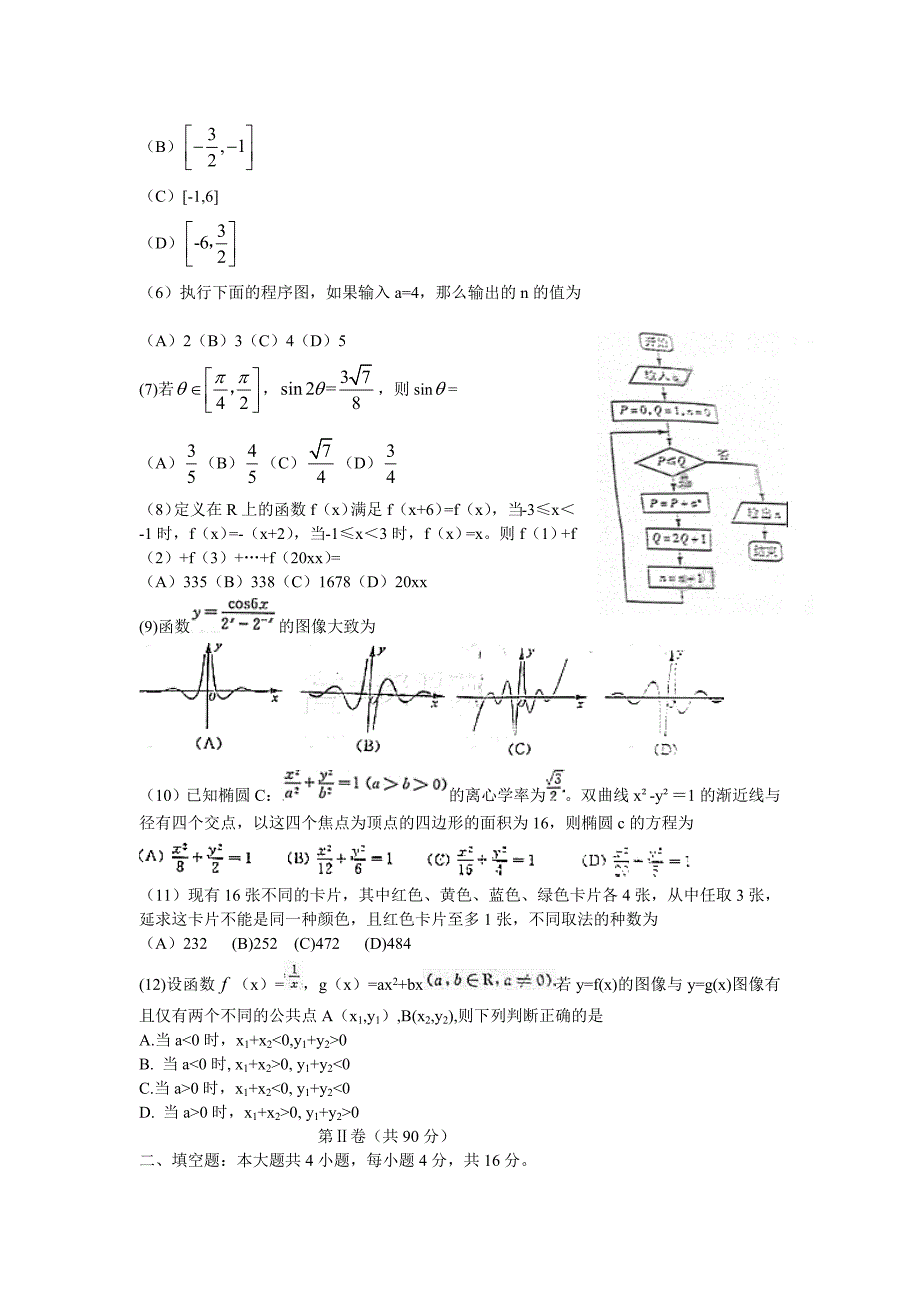 （B）[-3/2,-1]
（C）[-1,6]
（D）[-6，3/2]
（6）执行下面的程序图，如果输入 a=4，那么输出的 n 的值为
（A）2（B）3（C）4（D）5
(7)若θ∈[π/4，π/2]，sin2θ=3√7/8，则 sinθ=
（A）3/5（B）4/5（C）√7/4（D）3/4
（8）定义在 R 上的函数 f（x）满足 f（x+6）=f（x），当-3≤x＜
-1 时，f（x）=-（x+2），当-1≤x＜3 时，f（x）=x。则 f（1）+f
（2）+f（3）+…+f（20xx）=
（A）335（B）338（C）1678（D）20xx
开始
输入a
P=0,Q=1,n=0
P≤Q
否
是
Q=2Q+1
n=n+1
输出n
结束
(9)函数y=cos6x/(2ˣ-2⁻ˣ)的图像大致为
y
O
x
(A)
y
x
(B)
y
x
(C)
y
(D)
（10）已知椭圆 C：x²/a²+y²/b²=1(a>b>0)的离心学率为√3/2.。双曲线 x²-y²＝1 的渐近线与
径有四个交点，以这四个焦点为顶点的四边形的面积为 16，则椭圆 c 的方程为
(A) x²/8+y²/2=1 (B) x²/12+y²/6=1 (C) x²/16+y²/4=1 (D) x²/20+y²/5=1
（11）现有 16 张不同的卡片，其中红色、黄色、蓝色、绿色卡片各 4 张，从中任取 3 张，
延求这卡片不能是同一种颜色，且红色卡片至多 1 张，不同取法的种数为
（A）232 (B)252 (C)472 (D)484
(12)设函数 f （x）=1/x，g（x）=ax²+bx(a,b∈R,a≠0).若 y=f(x)的图像与 y=g(x)图像有
且仅有两个不同的公共点 A（x₁,y₁）,B(x₂,y₂),则下列判断正确的是
A.当 a<0 时，x₁+x₂<0,y₁+y₂>0
B. 当 a<0 时, x₁+x₂>0, y₁+y₂<0
C.当 a>0 时，x₁+x₂<0, y₁+y₂<0
D. 当 a>0 时，x₁+x₂>0, y₁+y₂>0
第Ⅱ卷（共 90 分）
二、填空题：本大题共 4 小题，每小题 4 分，共 16 分。